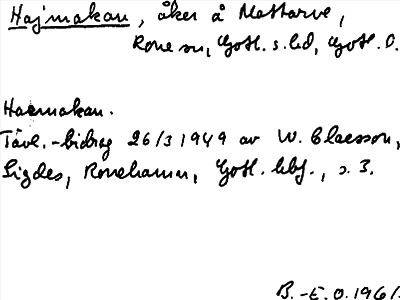 Hajmakan, åker å Mattarve,
Rone sn, Gotl. s. hd, Gotl. O.
Haemakan.
Tävl.-bidrag 26/3 1949 av W. Claesson,
Sigdes, Ronehamn, Gotl. hbf., s. 3.
B.-E. O. 1961.